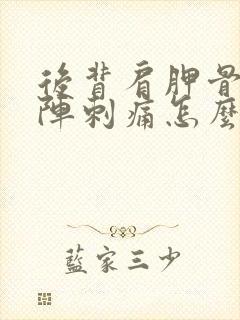 後背肩胛骨
陣刺痛怎麼
藍家三少